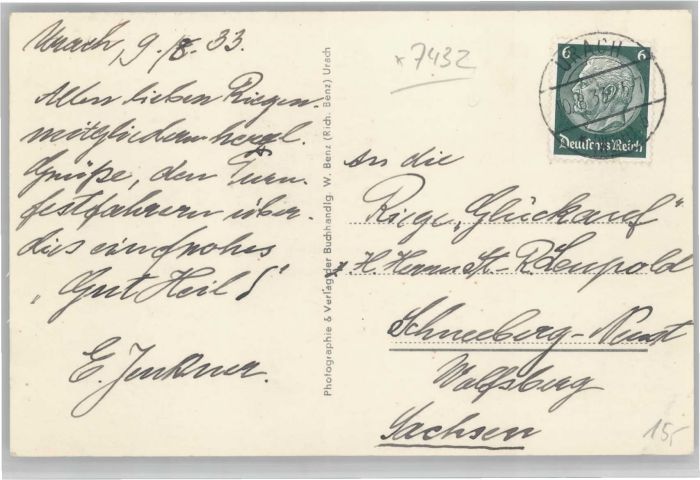 Urach, 9./8. 33.
Allen lieben Riegen-
mitgliedern herzl.
Grüße, den Turn-
festfahrern über-
dies ein frohes
"Gut Heil!"
E. Jenkner.
Photographie & Verlag der Buchhandlg. W. Benz (Rich. Benz) Urach
x7432
6 6
Deutsches Reich
URACH
An die
Riege „Glückauf"
z. H. Herrn St. R. Leupold
Schneeberg-Neust
Wolfsberg
Sachsen
15,-